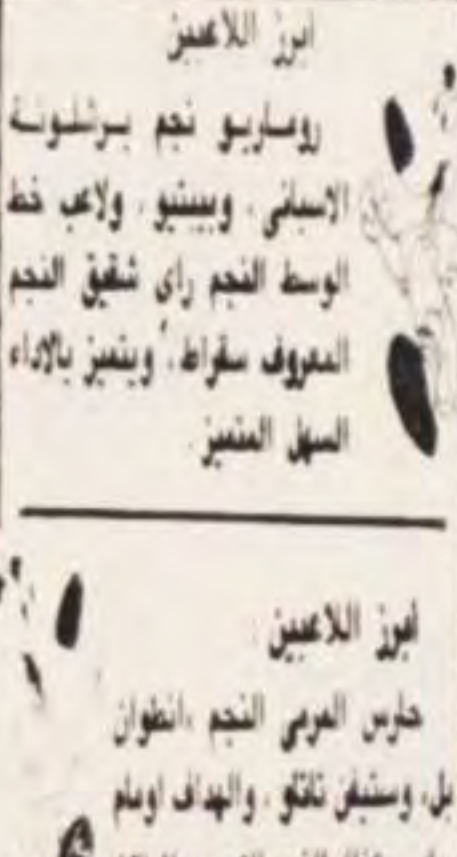 ابرز اللاعبين
روماريو نجم برشلونة
الاسباني ، وبيبيتو ، ولاعب خط
الوسط النجم راي شقيق النجم
المعروف سقراط ، ويتميز بالاداء
السهل المتميز .
ابرز اللاعبين :
حارس المرمى النجم ، انطوان
بل ، وستيفن تاتاو ، والهداف اومام